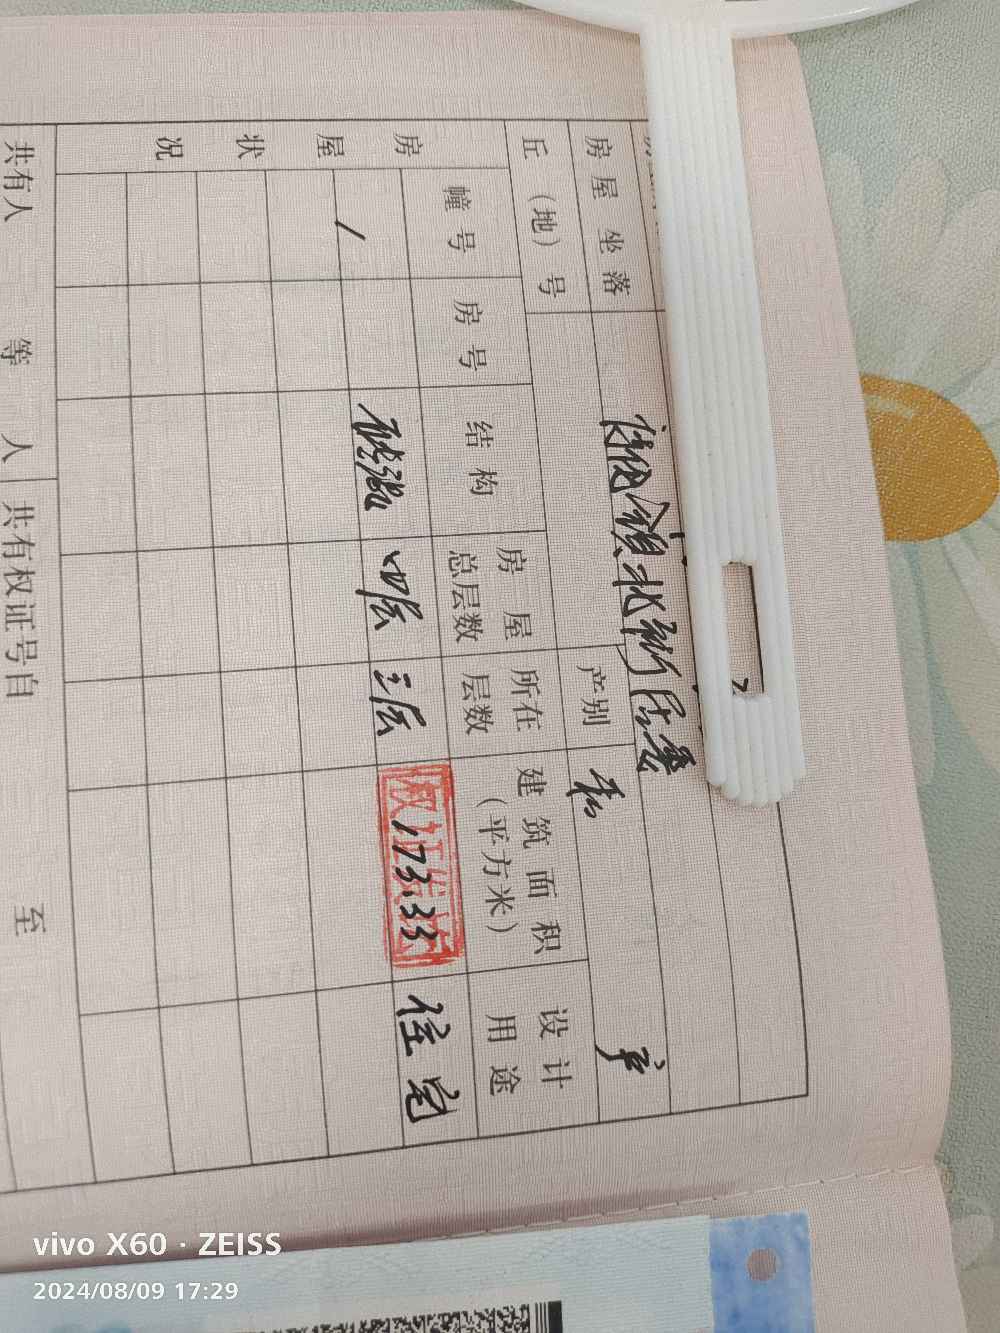 房屋坐落
丘（地）号
产别 私 产
房屋状况
幢号
房号
结构
房屋总层数
所在层数
建筑面积（平方米）
设计用途
四层
三层
173.33
住宅
共有人 等 人
共有权证号自 至
vivo X60 · ZEISS
2024/08/09 17:29